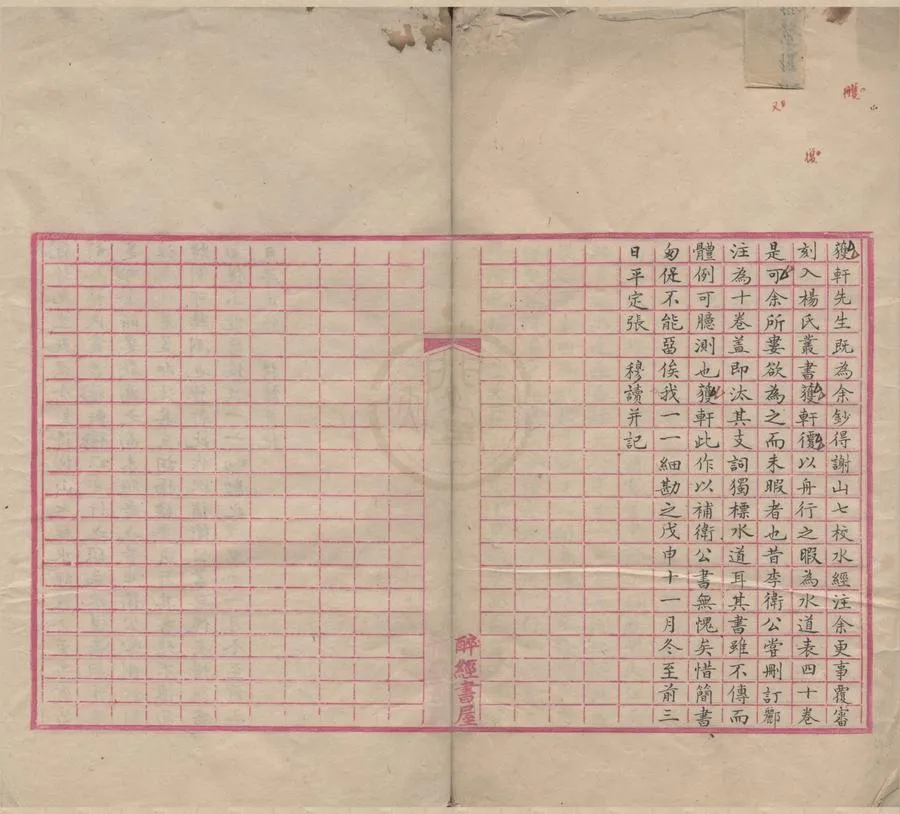 䕶軒先生既為余鈔得謝山七校水經注余更事覆審
刻入楊氏叢書䕶軒復以舟行之暇為水道表四十卷
是可余所婁欲為之而未暇者也昔李衛公嘗刪訂酈
注為十卷蓋即汰其支詞獨標水道耳其書雖不傳而
體例可臆測也䕶軒此作以補衛公書無愧矣惜簡書
匆促不能畱俟我一一細勘之戊申十一月冬至前三
日平定張　穆讀并記
醉經書屋
又